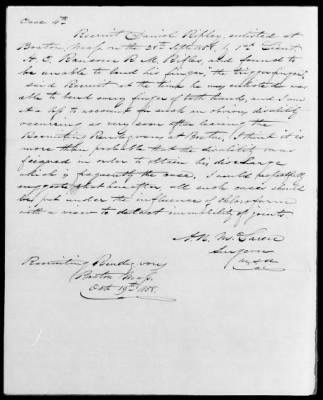 Case 4th
Recruit Daniel Ripley, enlisted at
Boston, Mass on the 28th Sept 1858, by 1st Lieut.
A. E. Ransome R. M. Rifles, and found to
be unable to bend his finger, the trigger finger,
said Recruit at the time he was enlisted was
able to bend every finger of both hands, and I am
at a loss to account for such an obvious disability
occurring so very soon after leaving the
Recruiting Rendezvous at Boston, I think it is
more than probable that the disability was
feigned in order to obtain his discharge
which is frequently the case, I would respectfully
suggest that hereafter all such cases should
be put under the influence of chloroform
with a view to detect immobility of joints
A. N. McLaren
Surgeon
USA
Recruiting Rendezvous
Boston Mass,
Oct 19th 1858.